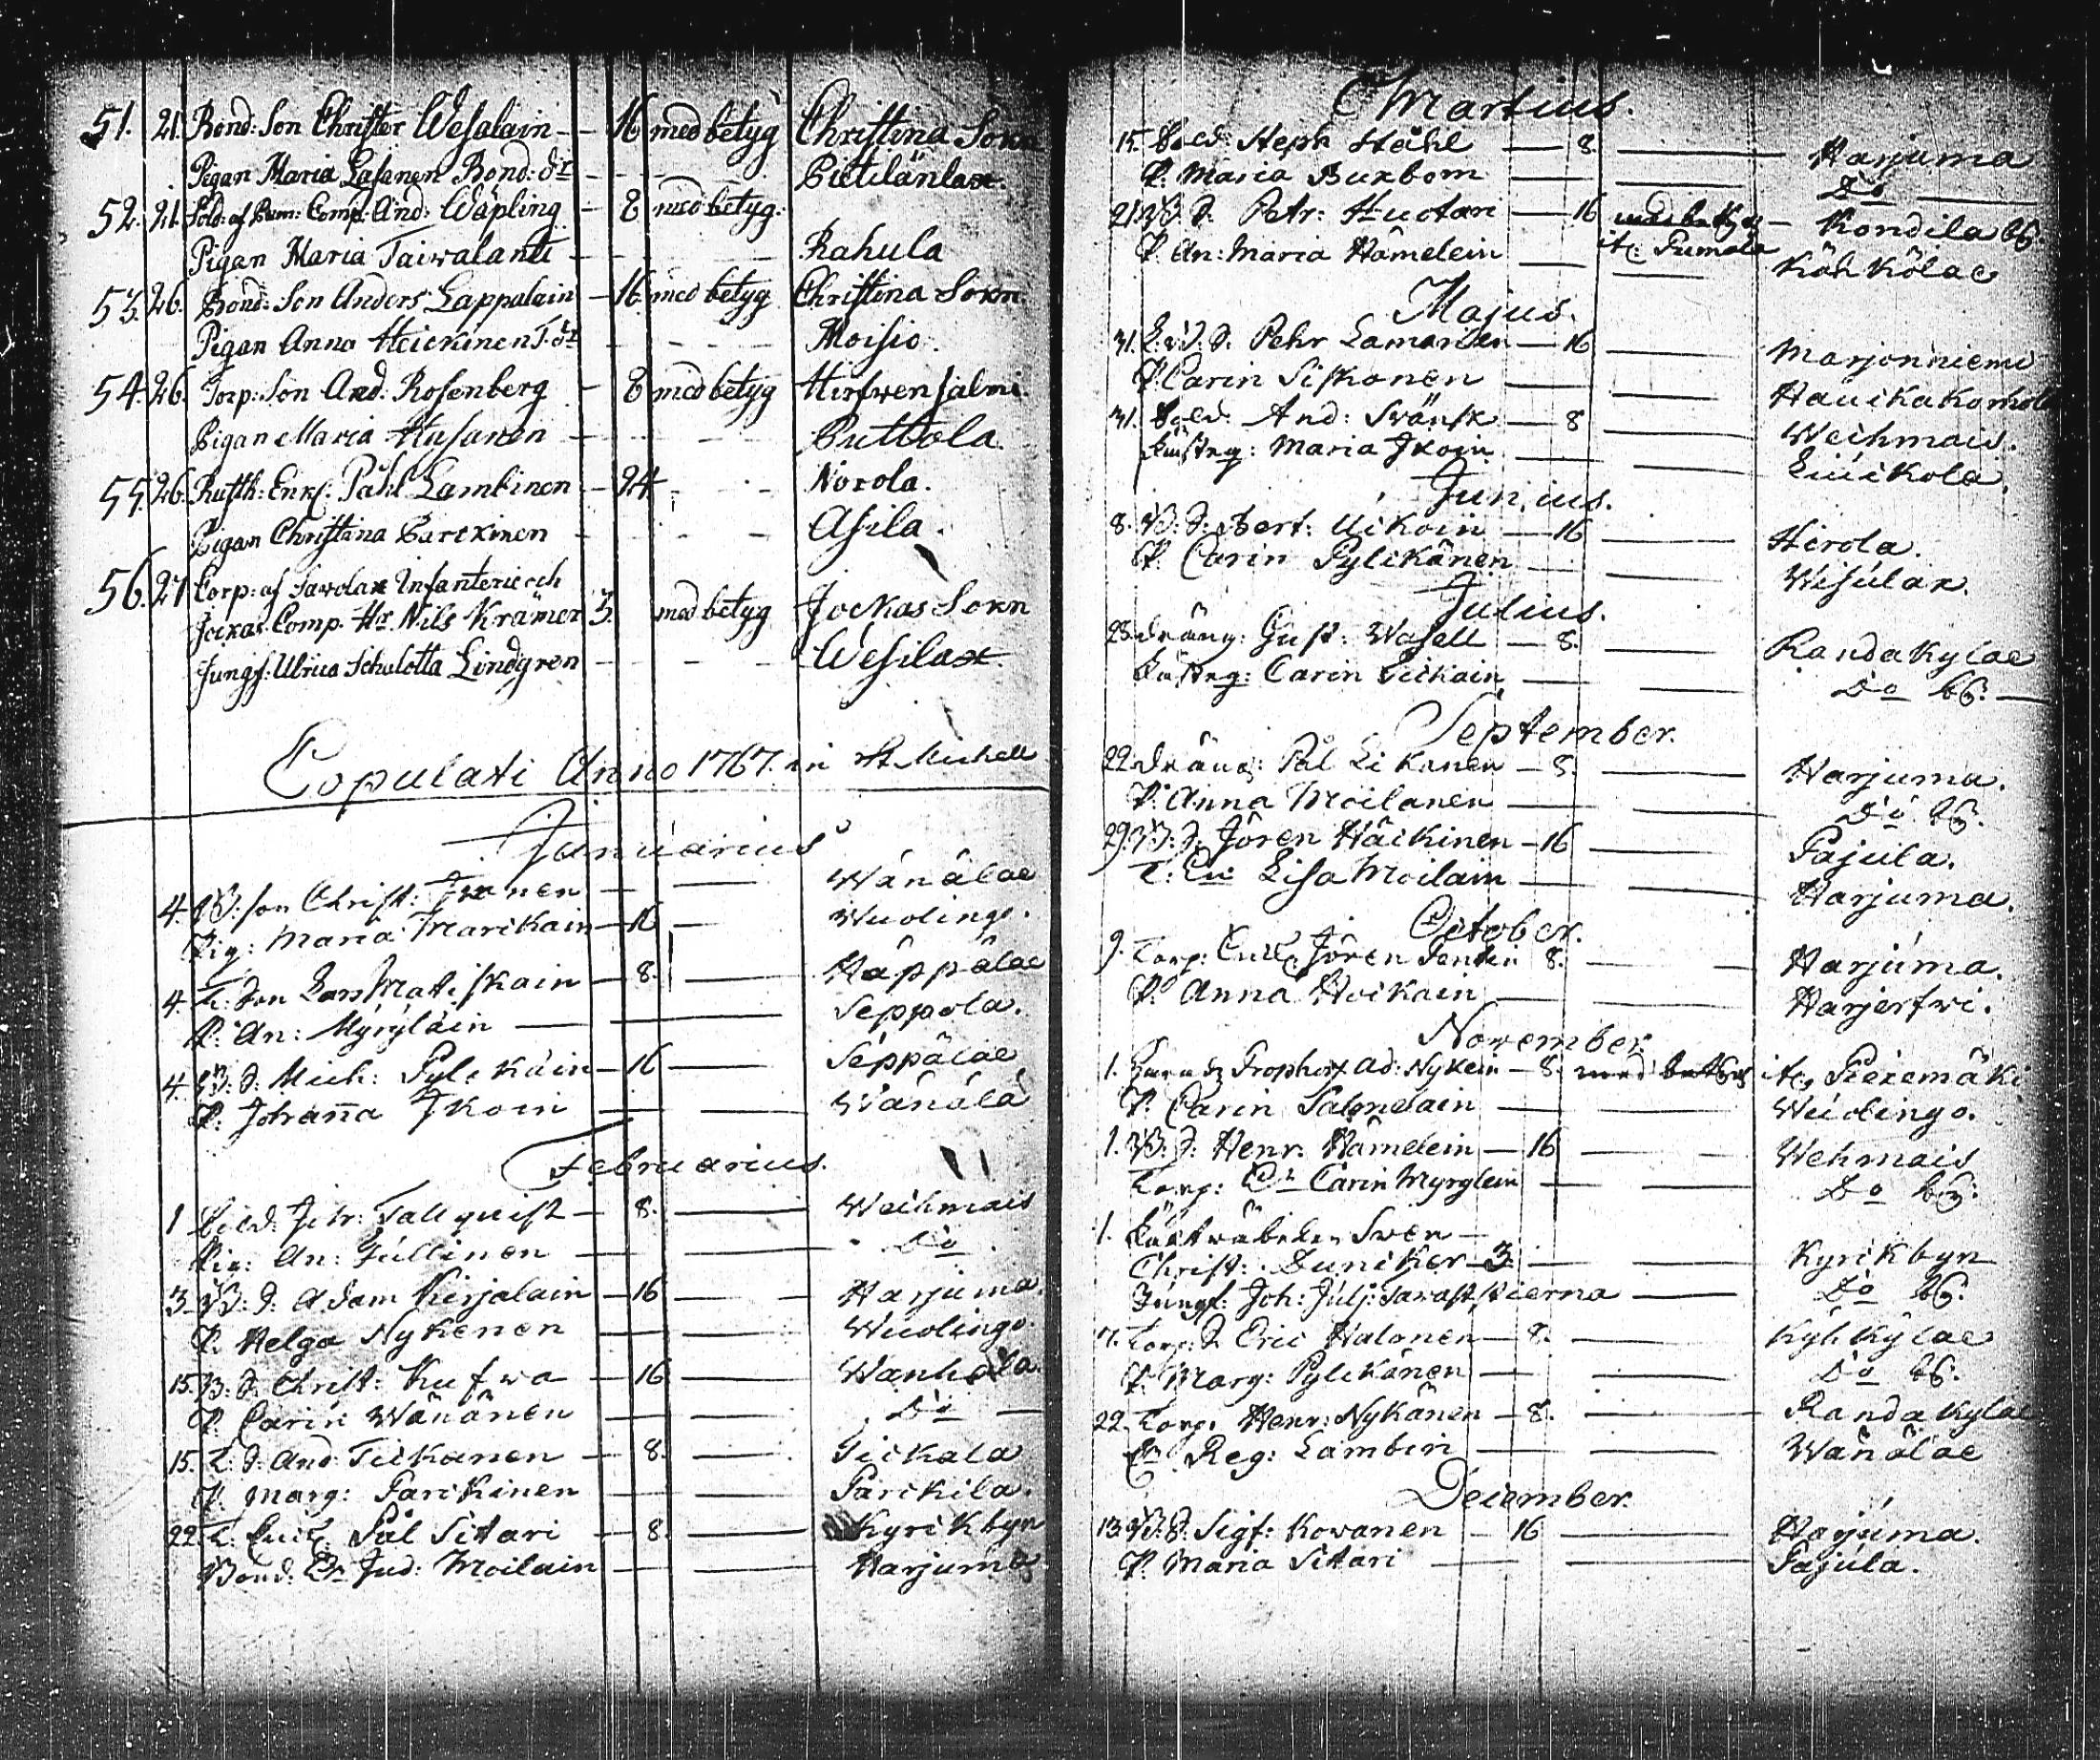 51. 21. Bond: Son Christer Wesalain — 16 med betyg Christina Sokn
Pigan Maria Lasanen Bond: dr - - - Pittilänlax.
52. 21. Sold: af Bem: Comp. And: Wäpling — 8 med betyg.
Pigan Maria Taiwalanti - - - Rahula
53. 26. Bond: Son Anders Lappalain — 16 med betyg Christina Sokn
Pigan Anna Heickinen T. dr - - - Moisio.
54. 26. Torp: Son And. Rosenberg — 8 med betyg Hirfwensalmi.
Pigan Maria Husanen - - - Puttola
55. 26. Rusth: Enkl. Påhl Lambinen — 24 - - Norola.
Pigan Christina Parckinen - - - Asila.
56. 27 Corp: af Savolax Infanterie och
Jockas Comp. Hr. Nils Krämer 3. med betyg Jockas Sokn
Jungf: Ulrica Schulotta Lindgren - - - Wesilax.
Copulati Anno 1767. in St. Michell
Januarius
4. B: son Christ: — — Wänälae
Pig: Maria Marikain — 16 — Wuolingo.
4. T: Son Lars Matiskain — 8. — Häppälae
P. An: Mÿrÿläin — — Seppola.
4. B: S. Mich: Pylckäin — 16 — Seppälae
P. Johanna Ikoin — — Wänälä
Februarius.
1 Sold: Joh: Tallquist — 8. — Weihmais
Pig: An: Jullinen — — Do
3. B: S: Adam Kirjalain — 16 — Harjuma.
P. Helga Nykenen — — Wuolingo
15. B: S. Christ: Kufwa — 16 — Wanhala.
P. Carin Wänänen — — Do —
15. T: S. And: Tickanen — 8. — Tickala
P. Marg: Parckinen — — Parckila.
22. T. Pål Sitari — 8. — Kyrikbyn
Bond: Dr Jud: Moilain — — Harjuma.
Martius.
15. Sold: Steph Stähl — 8. — Harjuma
P. Maria Buxbom — — Do —
21. B: S. Petr: Huotari — 16 med betyg — Kondila
P. An: Maria Hämelein — Pumala — Köhkölae
Majus.
31. S. Pehr Lamanden — 16 — Marjonniemi
P. Carin Siskonen — — Hauckakomola
31. Sold: And: Svänsk — 8 — Weihmais.
Maria Ikoin — — Liuikola.
Junius.
8. B: S: Bert: Uikoin — 16 — Hirola.
P. Carin Pylckänen — — Wisulax.
Julius.
25. dräng: Gust: Wasell — 8. — Randakylae
Carin Tickain — — Do —
September.
22. dräng: Pål Likanen — 8. — Harjuma.
P. Anna Moilanen — — Do
29. B: S. Jören Häickinen — 16 — Pajula.
Lisa Moilain — — Harjuma.
October.
9. Torp: Jören 8. — Harjuma.
P. Anna Hockain — — Harjerfwi.
November.
1. Ad: Nykein — 8. med betyg Piexemäki
P. Carin Salmelain — — Wuolingo.
1. B: S. Henr: Hämelein — 16 — Wehmais
Torp: Dr Carin Myrylein — — Do
1. Swen —
Christ: Duncker — 3. — Kyrikbyn
Jungf: Joh: Julj: Savast Stierna — Do
7. Torp: S. Eric Halonen — 8. — Kyhkylae
P. Marg: Pylckänen — — Do
22. Torp. Henr: Nykänen — 8. — Randakylae
Reg: Lambin — — Wänälae
December.
13. B: S: Sigf: Kovanen — 16 — Harjuma.
P. Maria Sitari — — Pajula.